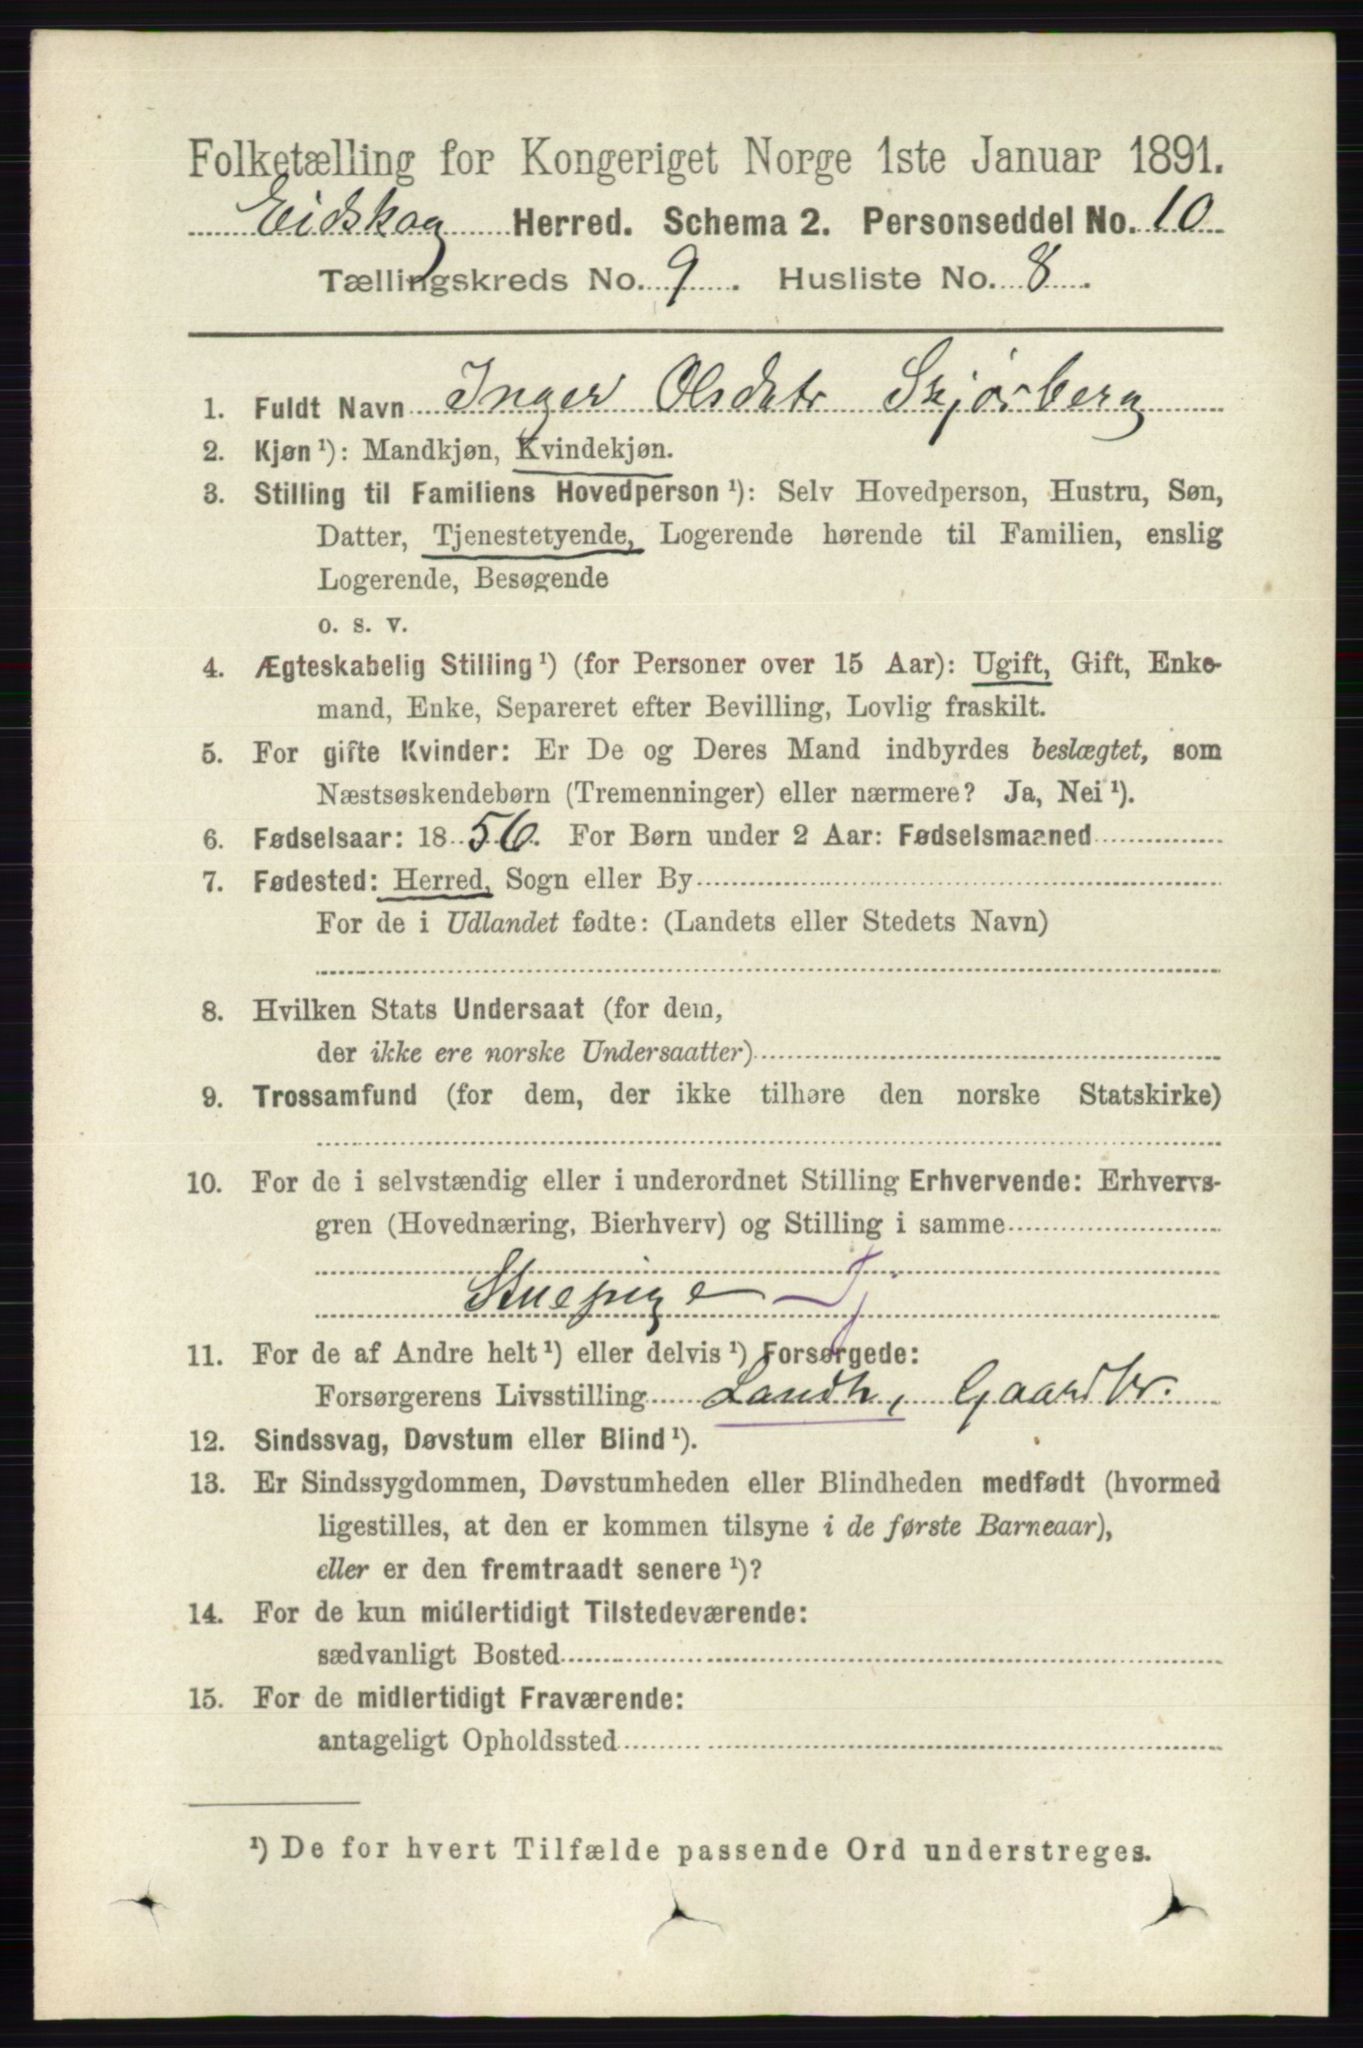 Folketælling for Kongeriget Norge 1ste Januar 1891.
Eidskog Herred. Schema 2. Personseddel No. 10
Tællingskreds No. 9. Husliste No. 8.
1. Fuldt Navn Inger Olsdatr Skjørberg
2. Kjøn ¹): Mandkjøn, Kvindekjøn.
3. Stilling til Familiens Hovedperson ¹): Selv Hovedperson, Hustru, Søn,
Datter, Tjenestetyende, Logerende hørende til Familien, enslig
Logerende, Besøgende
o. s. v.
4. Ægteskabelig Stilling ¹) (for Personer over 15 Aar): Ugift, Gift, Enke-
mand, Enke, Separeret efter Bevilling, Lovlig fraskilt.
5. For gifte Kvinder: Er De og Deres Mand indbyrdes beslægtet, som
Næstsøskendebørn (Tremenninger) eller nærmere? Ja, Nei ¹).
6. Fødselsaar: 1856. For Børn under 2 Aar: Fødselsmaaned
7. Fødested: Herred, Sogn eller By
For de i Udlandet fødte: (Landets eller Stedets Navn)
8. Hvilken Stats Undersaat (for dem,
der ikke ere norske Undersaatter)
9. Trossamfund (for dem, der ikke tilhøre den norske Statskirke)
10. For de i selvstændig eller i underordnet Stilling Erhvervende: Erhvervs-
gren (Hovednæring, Bierhverv) og Stilling i samme
Stuepige
11. For de af Andre helt ¹) eller delvis ¹) Forsørgede:
Forsørgerens Livsstilling Landh, Gaardbr.
12. Sindssvag, Døvstum eller Blind ¹).
13. Er Sindssygdommen, Døvstumheden eller Blindheden medfødt (hvormed
ligestilles, at den er kommen tilsyne i de første Barneaar),
eller er den fremtraadt senere ¹)?
14. For de kun midlertidigt Tilstedeværende:
sædvanligt Bosted
15. For de midlertidigt Fraværende:
antageligt Opholdssted
¹) De for hvert Tilfælde passende Ord understreges.